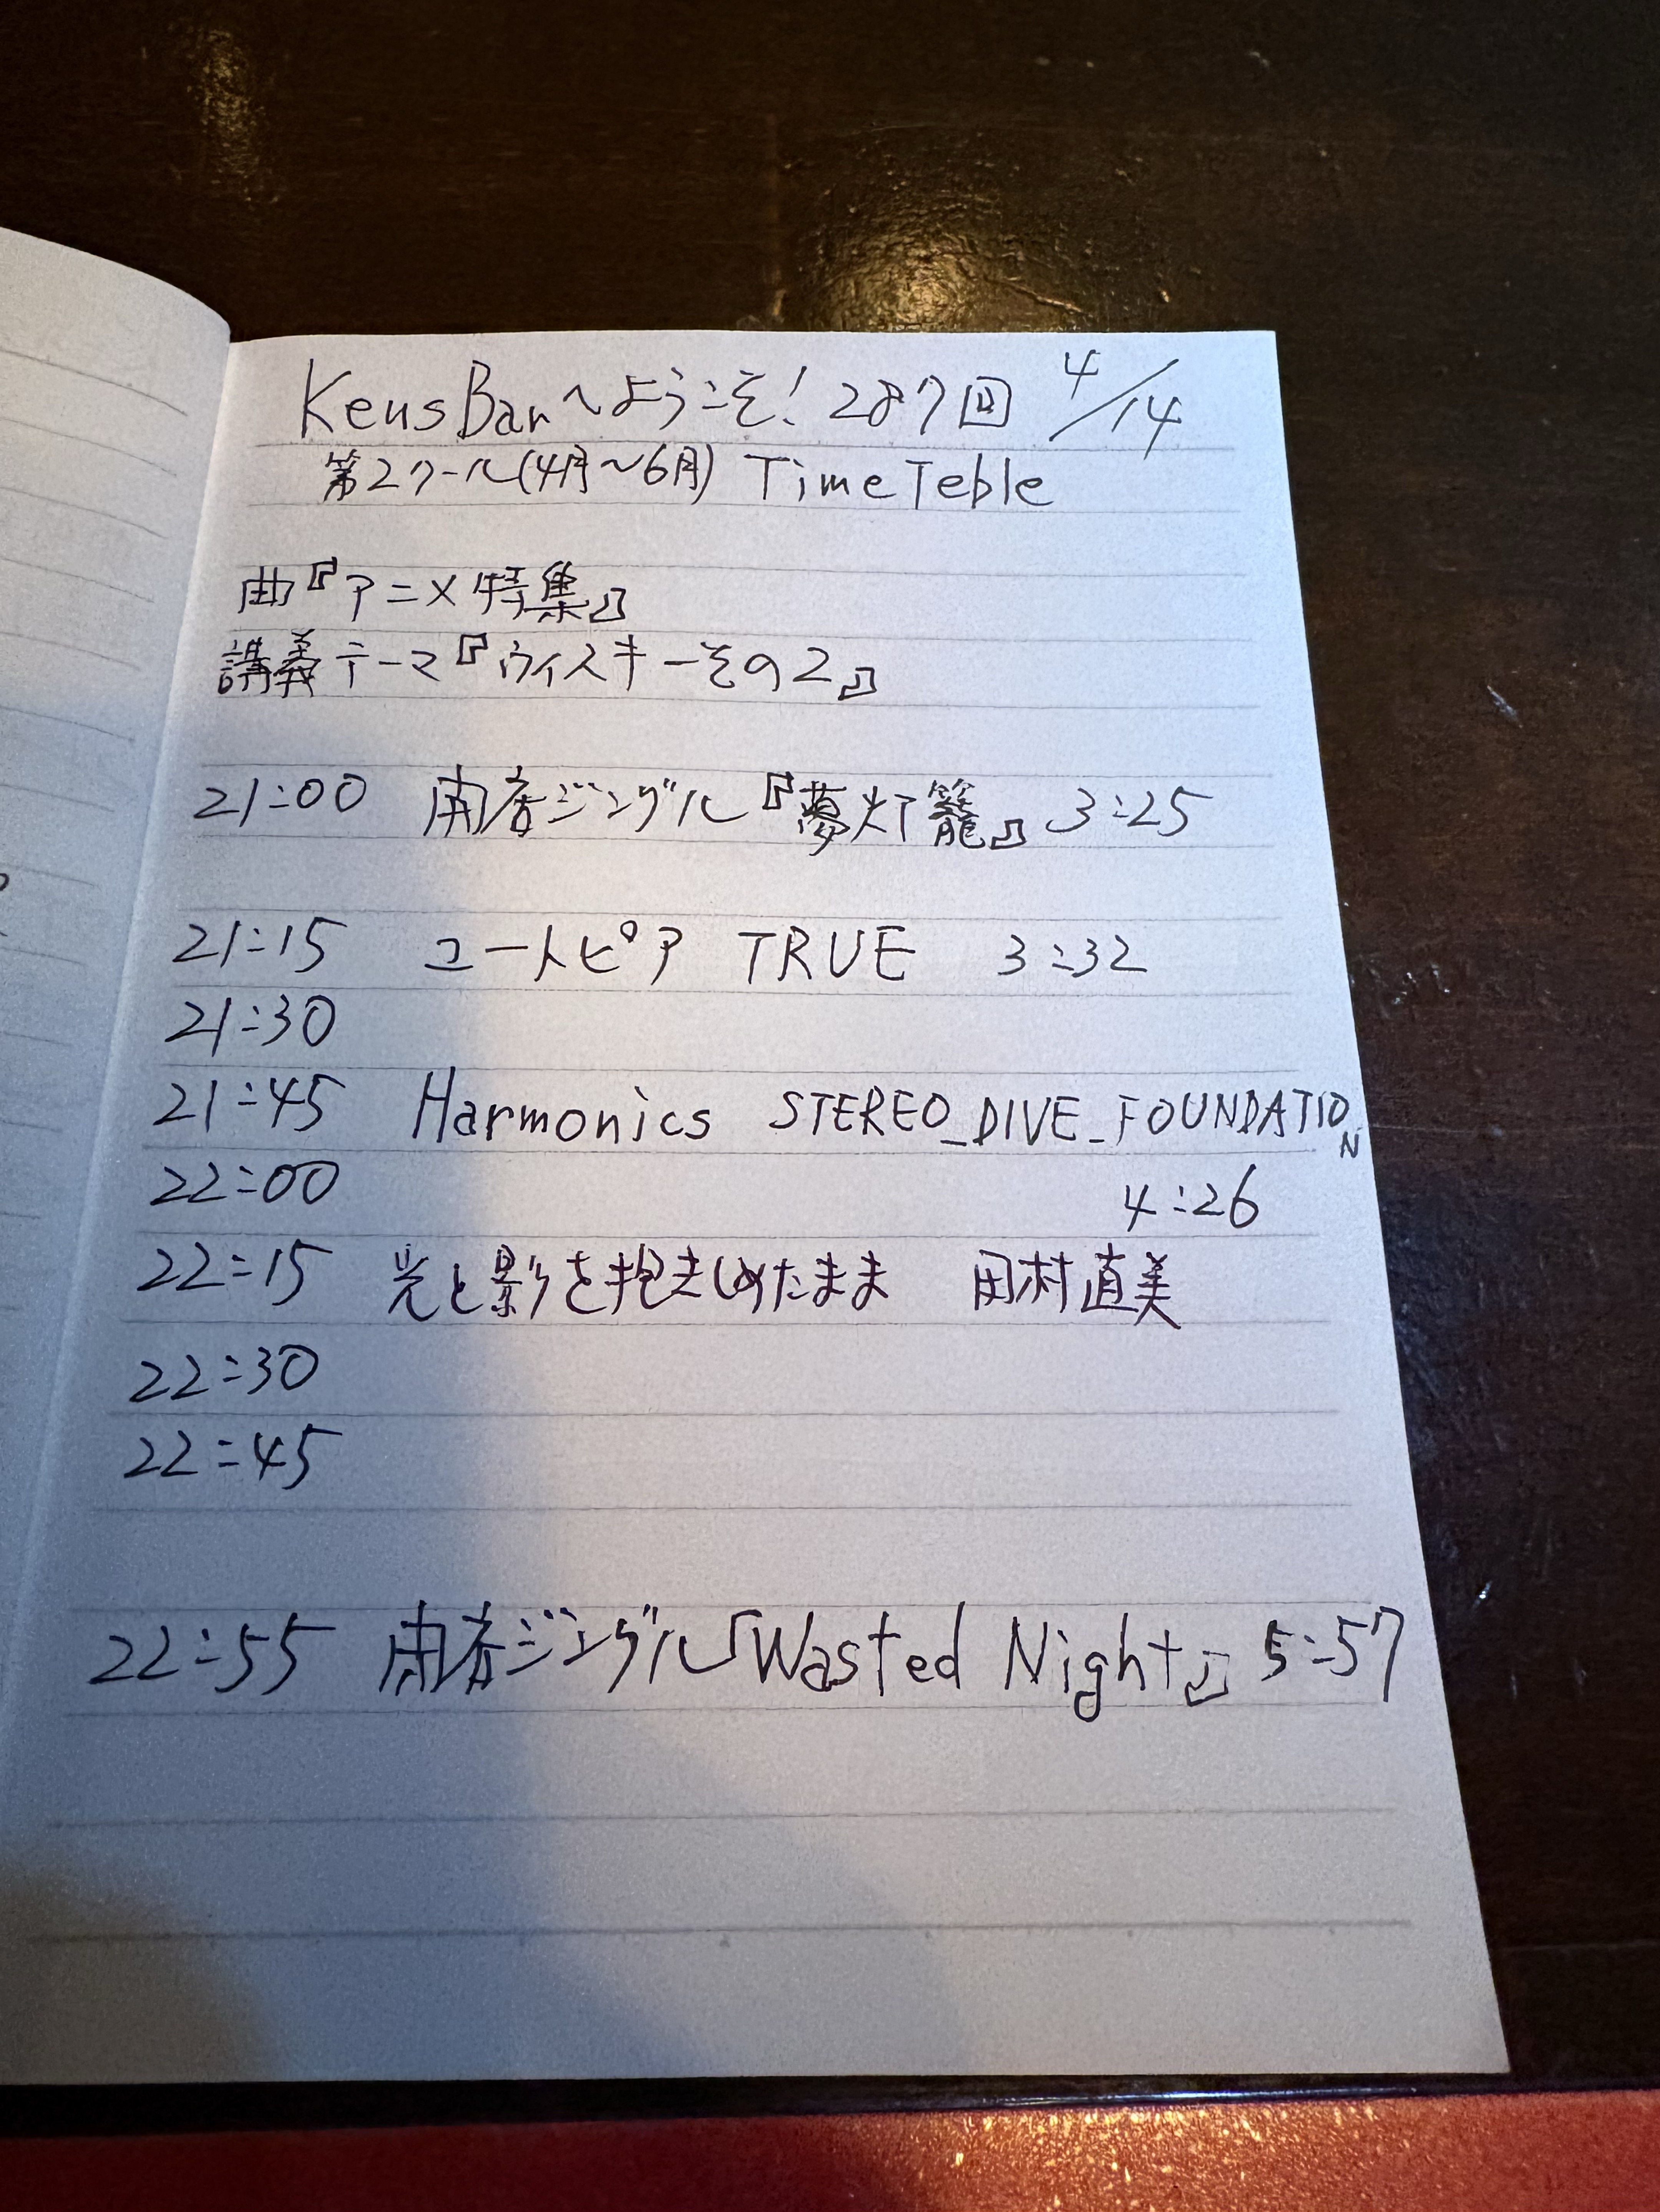 KensBarへようこそ！287回 4/14
第2クール(4月～6月) TimeTeble
曲『アニメ特集』
講義テーマ『ウイスキーその2』
21:00 南春ジングル『夢灯籠』 3:25
21:15 ユートピア TRUE 3:32
21:30
21:45 Harmonics STEREO_DIVE_FOUNDATION
22:00 4:26
22:15 光と影を抱きしめたまま 田村直美
22:30
22:45
22:55 南春ジングル「Wasted Night』 5:57